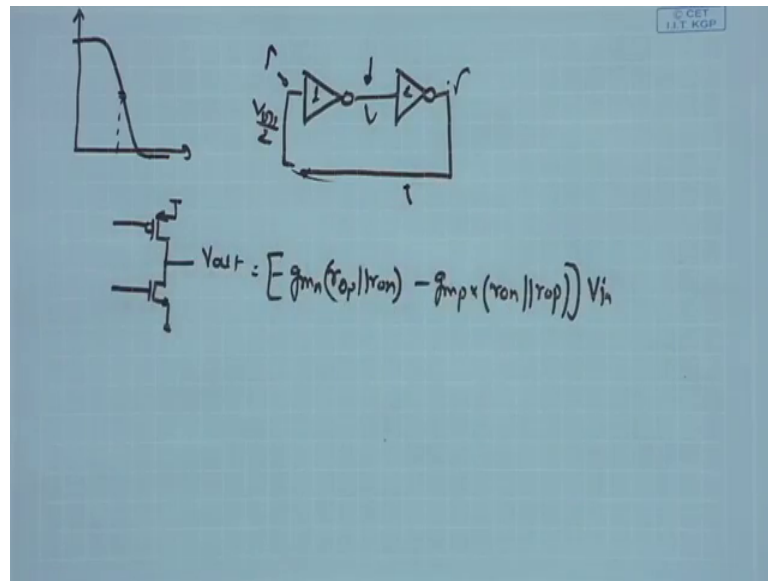 © CET
I.I.T. KGP
1
2
V_DD/2
Vout = [-g_mn(r_op||r_on) - g_mp*(r_on||r_op)] V_in